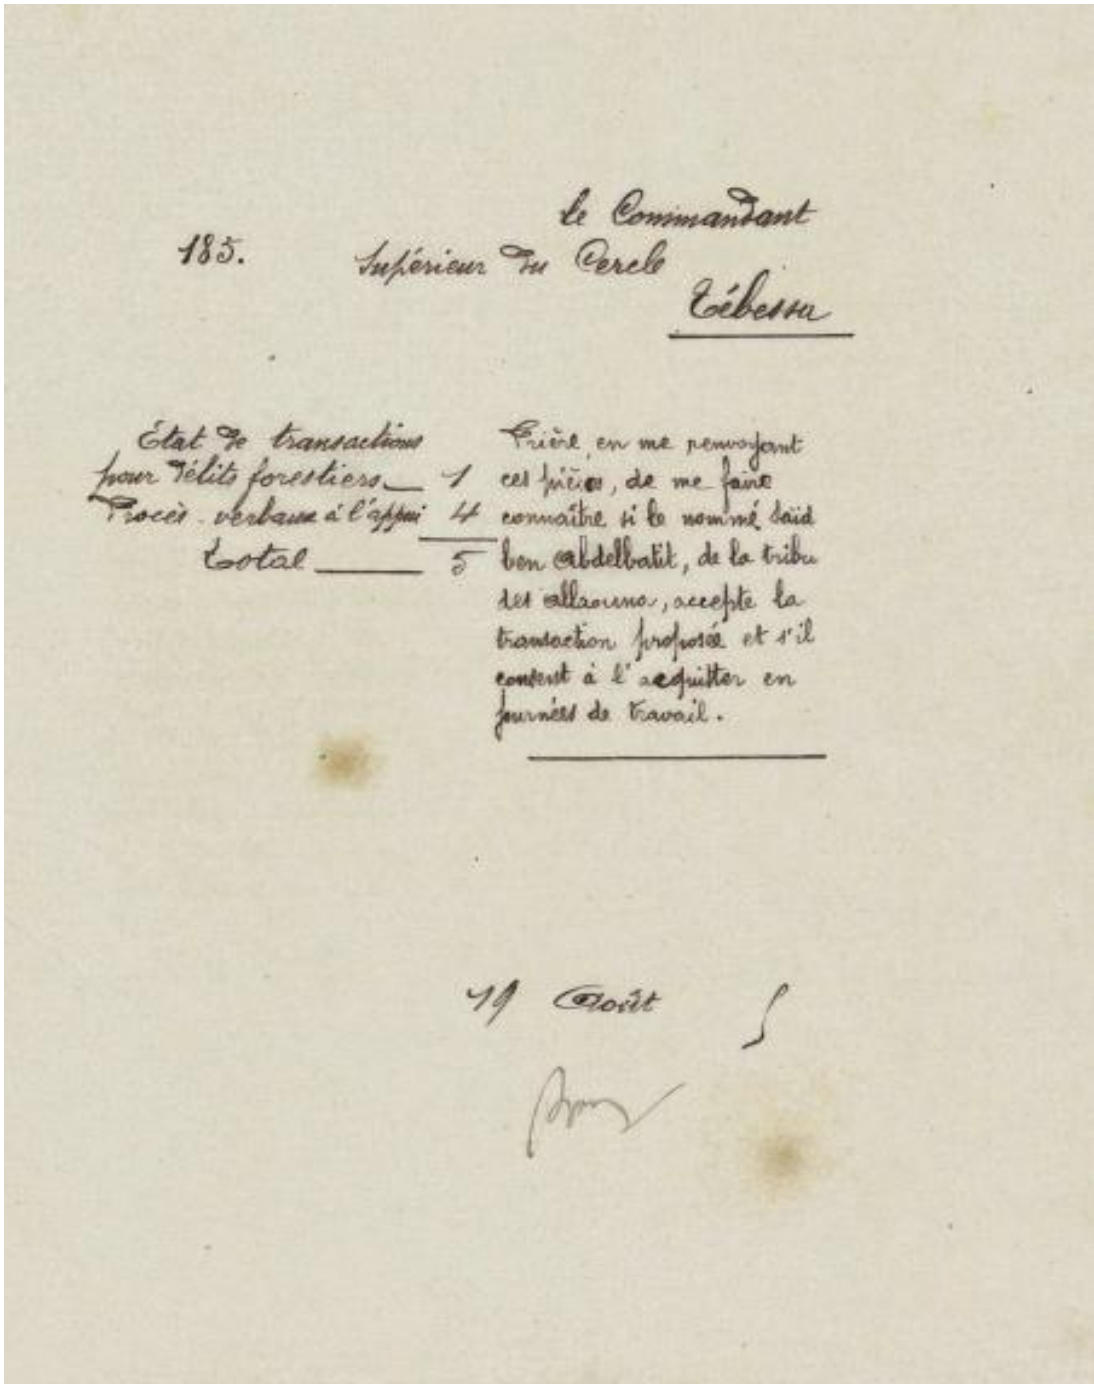 le Commandant
185. Supérieur du Cercle
Tébessa
État de transactions
pour délits forestiers 1
Procès-verbaux à l'appui 4
Total 5
Prière, en me renvoyant
ces pièces, de me faire
connaître si le nommé Saïd
ben Abdelbatit, de la tribu
des Allaouna, accepte la
transaction proposée et s'il
consent à l'acquitter en
journées de travail.
19 Août